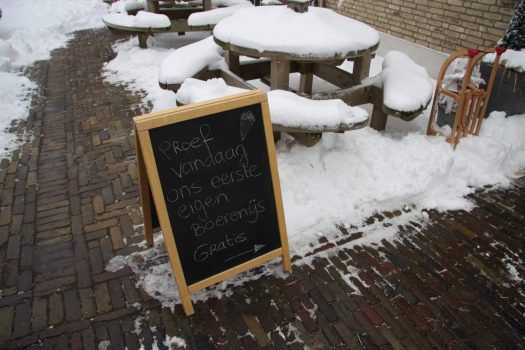 PROEF
vandaag
ons eerste
eigen
Boerenijs
Gratis